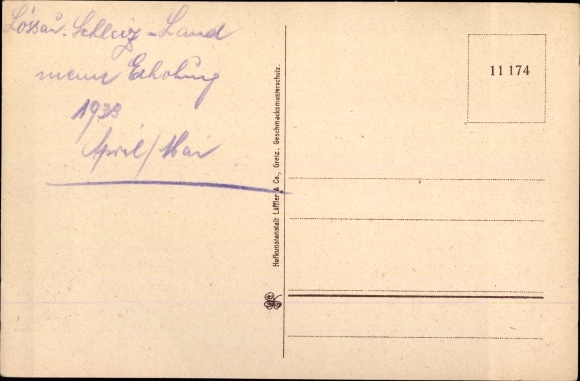 Lössau. Schleiz-Land
meine Erholung
1933
April/Mai
Hofkunstanstalt Löffler & Co., Greiz, Geschmacksmusterschutz.
11 174